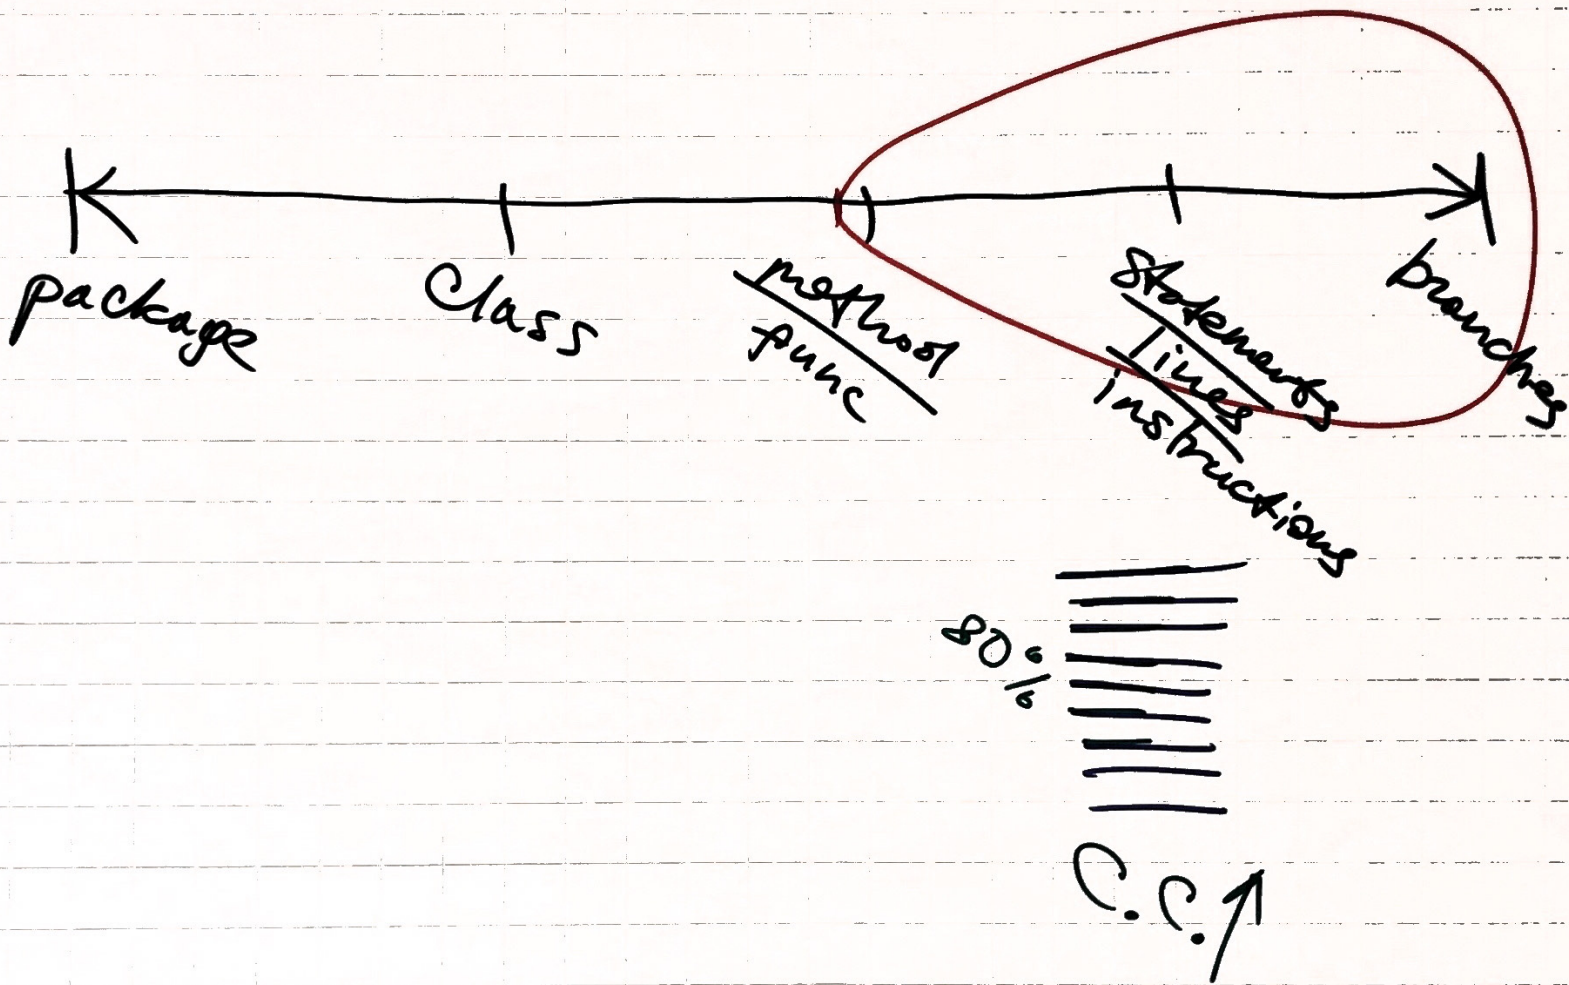 package
Class
method
func
Statements
lines
instructions
branches
80%
C.C.